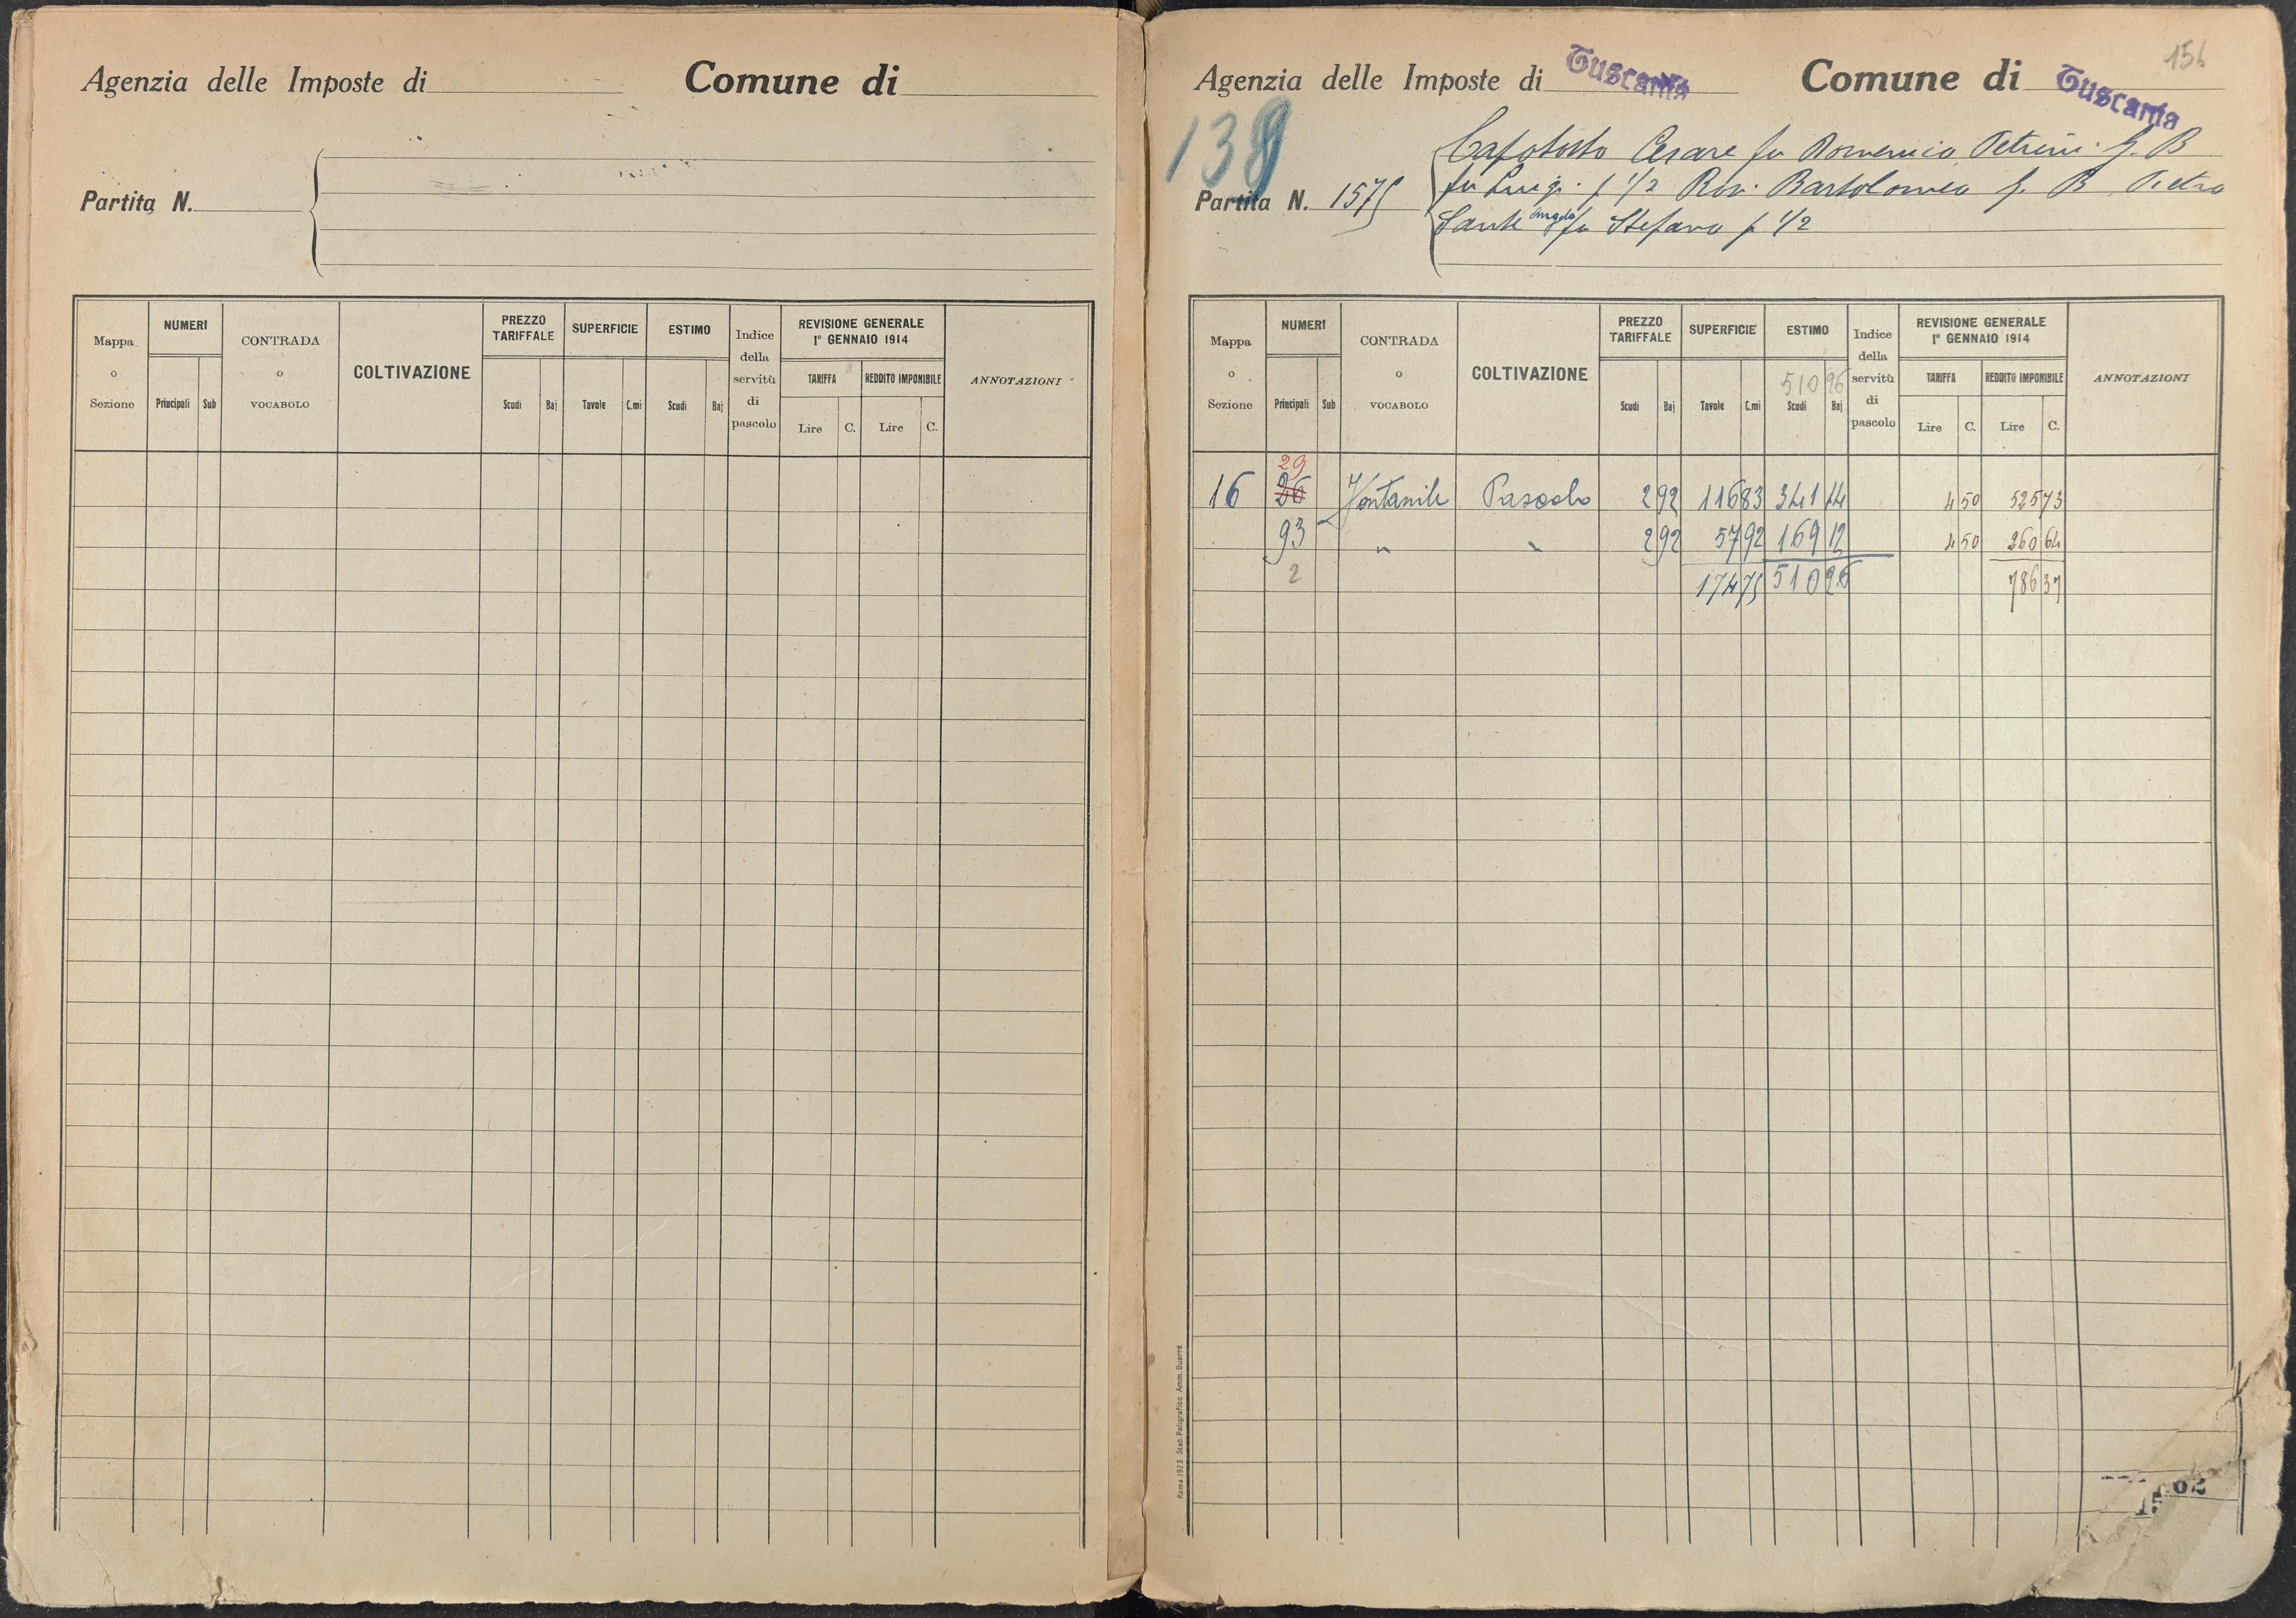 Agenzia delle Imposte di Comune di
Partita N.
Mappa o Sezione NUMERI Principali Sub CONTRADA o VOCABOLO COLTIVAZIONE PREZZO TARIFFALE Scudi Baj SUPERFICIE Tavole C.mi ESTIMO Scudi Baj Indice della servitù di pascolo REVISIONE GENERALE 1° GENNAIO 1914 TARIFFA Lire C. REDDITO IMPONIBILE Lire C. ANNOTAZIONI
156
Agenzia delle Imposte di Tuscania Comune di Tuscania
138
Partita N. 1575
Capotosto Cesare fu Domenico, Petrini G. B
fu Luigi p 1/2 Bartolomeo Pietro
Sante Angelo fu Stefano p 1/2
Mappa o Sezione NUMERI Principali Sub CONTRADA o VOCABOLO COLTIVAZIONE PREZZO TARIFFALE Scudi Baj SUPERFICIE Tavole C.mi ESTIMO 510 96 Scudi Baj Indice della servitù di pascolo REVISIONE GENERALE 1° GENNAIO 1914 TARIFFA Lire C. REDDITO IMPONIBILE Lire C. ANNOTAZIONI
29
16 26 Fontanile Pascolo 2 92 116 83 341 14 4 50 525 73
93 " " 2 92 57 92 169 12 4 50 260 64
2 174 75 510 26 786 37
Roma 1923 Stab. Poligrafico Amm. Guerra